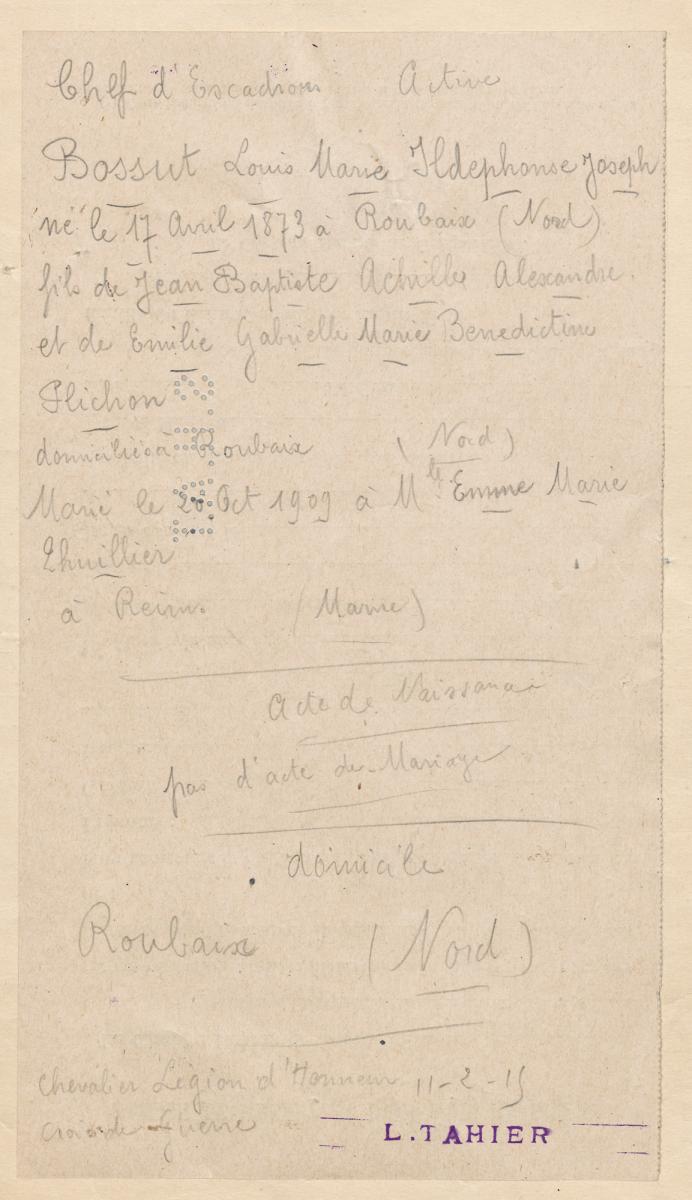 Chef d'Escadrons Active
Bossut Louis Marie Ildephonse Joseph
né le 17 Avril 1873 à Roubaix (Nord)
fils de Jean Baptiste Achille Alexandre.
et de Emilie Gabrielle Marie Benedictine
Flichon
domicilié à Roubaix (Nord)
Marié le 20 Oct 1909 à Mlle Emme Marie
Lhuillier
à Reims. (Marne)
Acte de Naissance
pas d'acte de Mariage
domicile
Roubaix (Nord)
Chevalier Légion d'Honneur 11-2-15
Croix de Guerre
L. TAHIER